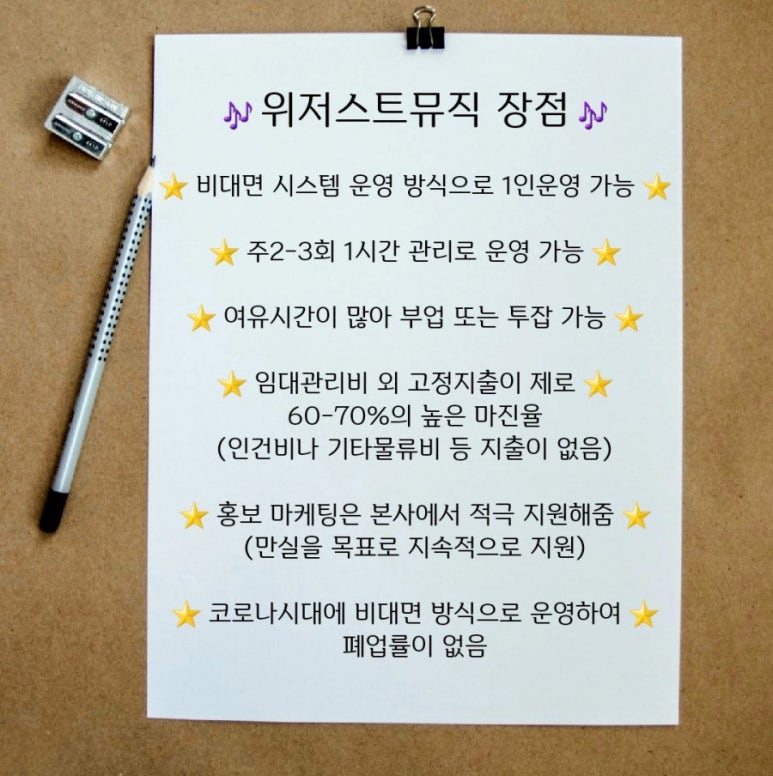 🎶 위저스트뮤직 장점 🎶
⭐ 비대면 시스템 운영 방식으로 1인운영 가능 ⭐
⭐ 주2-3회 1시간 관리로 운영 가능 ⭐
⭐ 여유시간이 많아 부업 또는 투잡 가능 ⭐
⭐ 임대관리비 외 고정지출이 제로 ⭐
60-70%의 높은 마진율
(인건비나 기타물류비 등 지출이 없음)
⭐ 홍보 마케팅은 본사에서 적극 지원해줌 ⭐
(만실을 목표로 지속적으로 지원)
⭐ 코로나시대에 비대면 방식으로 운영하여 ⭐
폐업률이 없음